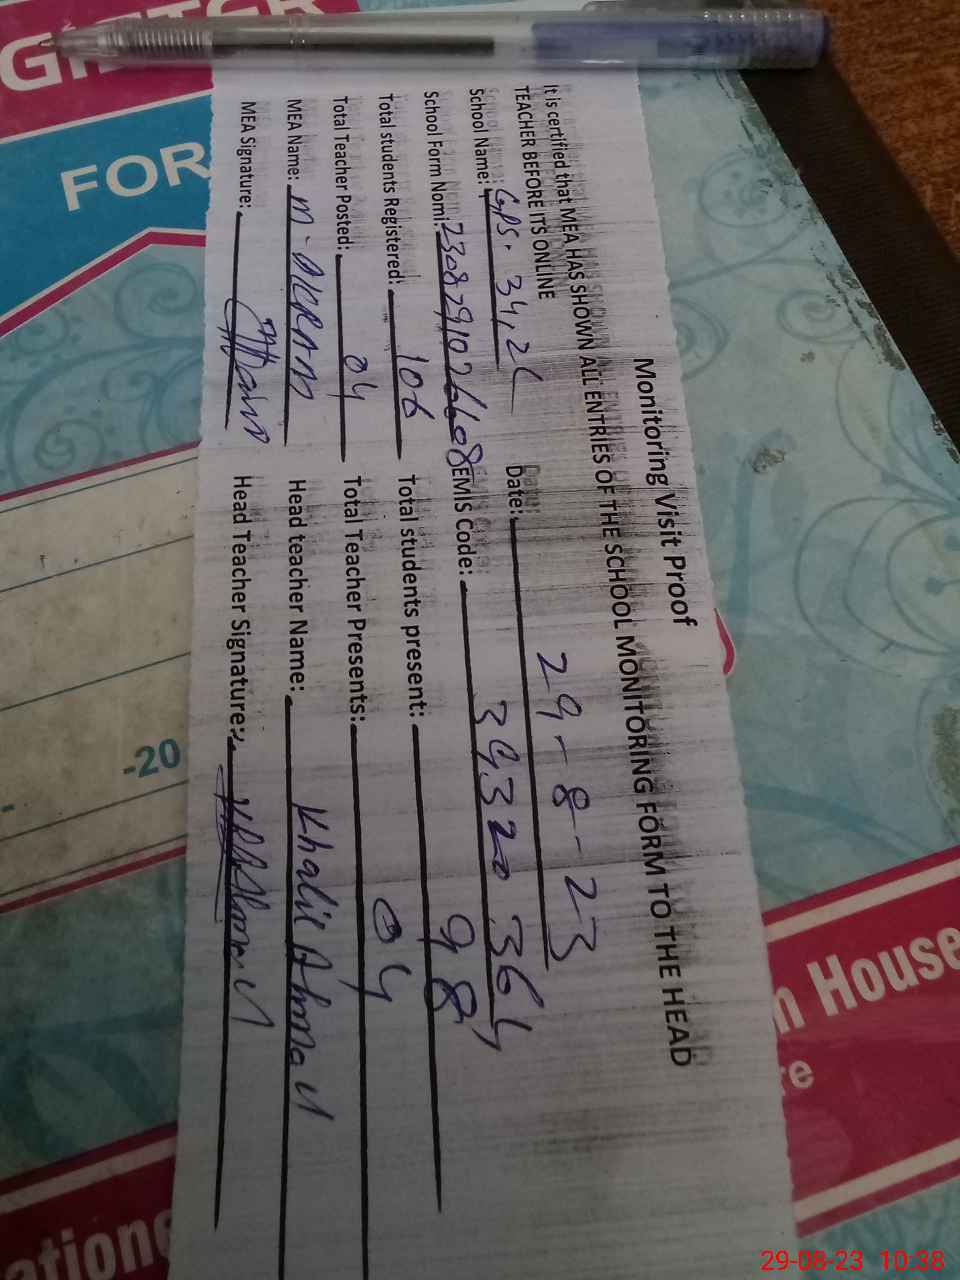 GISTER
FOR
Monitoring Visit Proof
It is certified that MEA HAS SHOWN ALL ENTRIES OF THE SCHOOL MONITORING FORM TO THE HEAD
TEACHER BEFORE ITS ONLINE
School Name: GPS. 34, 2L Date: 29-8-23
School Form Nom: 230829102608 EMIS Code: 39320364
Total students Registered: 106 Total students present: 98
Total Teacher Posted: 04 Total Teacher Presents: 04
MEA Name: M-AKRAM Head teacher Name: Khalil Ahmad
MEA Signature: Head Teacher Signature:
-20
n House
re
atione
29-08-23 10:38